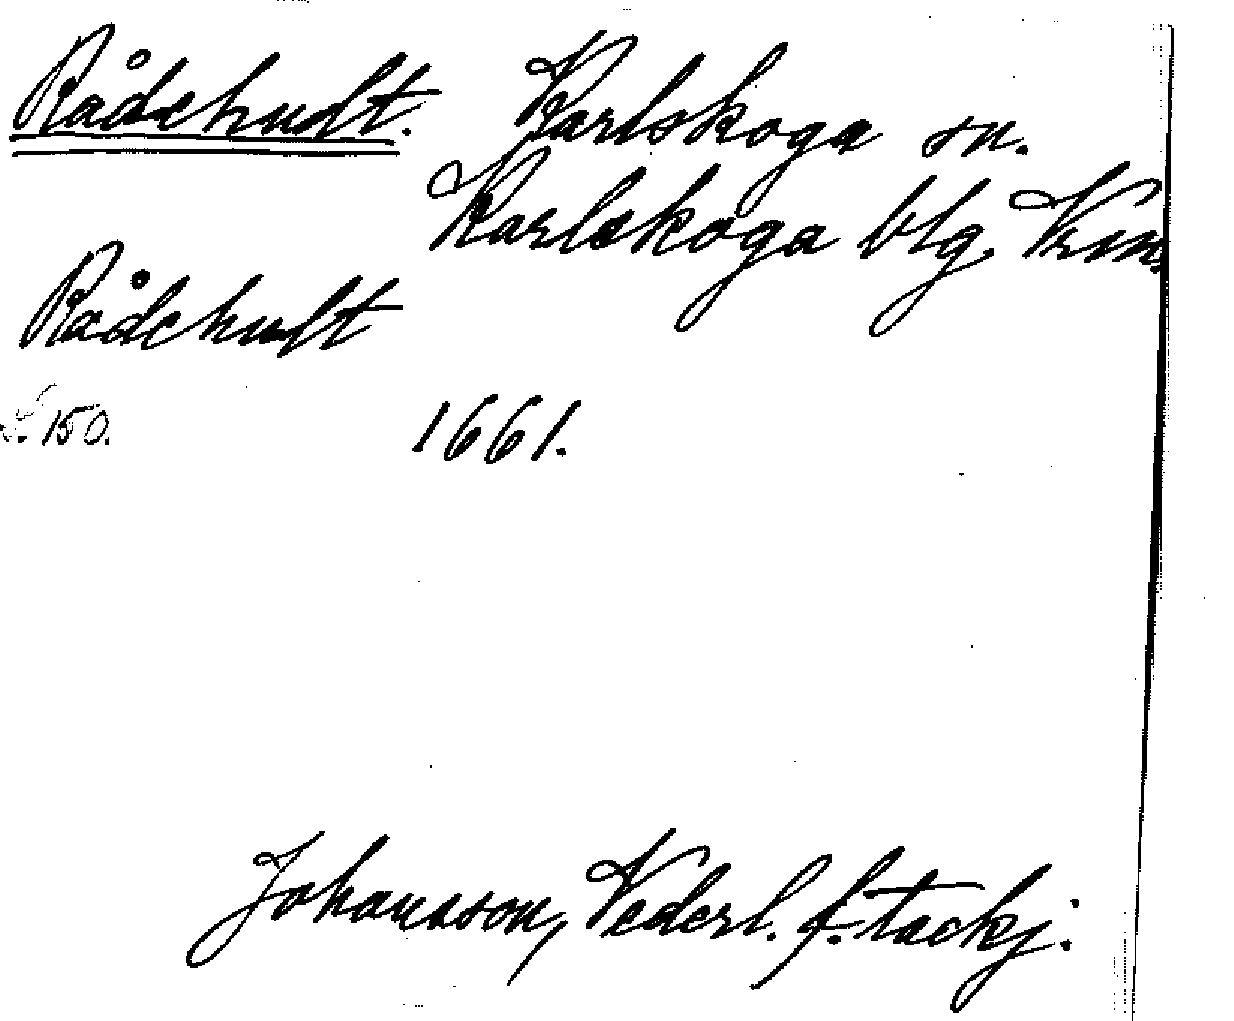 Rådehult. Karlskoga sn.
Karlskoga blg. Vrm.
Rådehult
S. 150. 1661.
Johansson, Vederl. f. tackj.